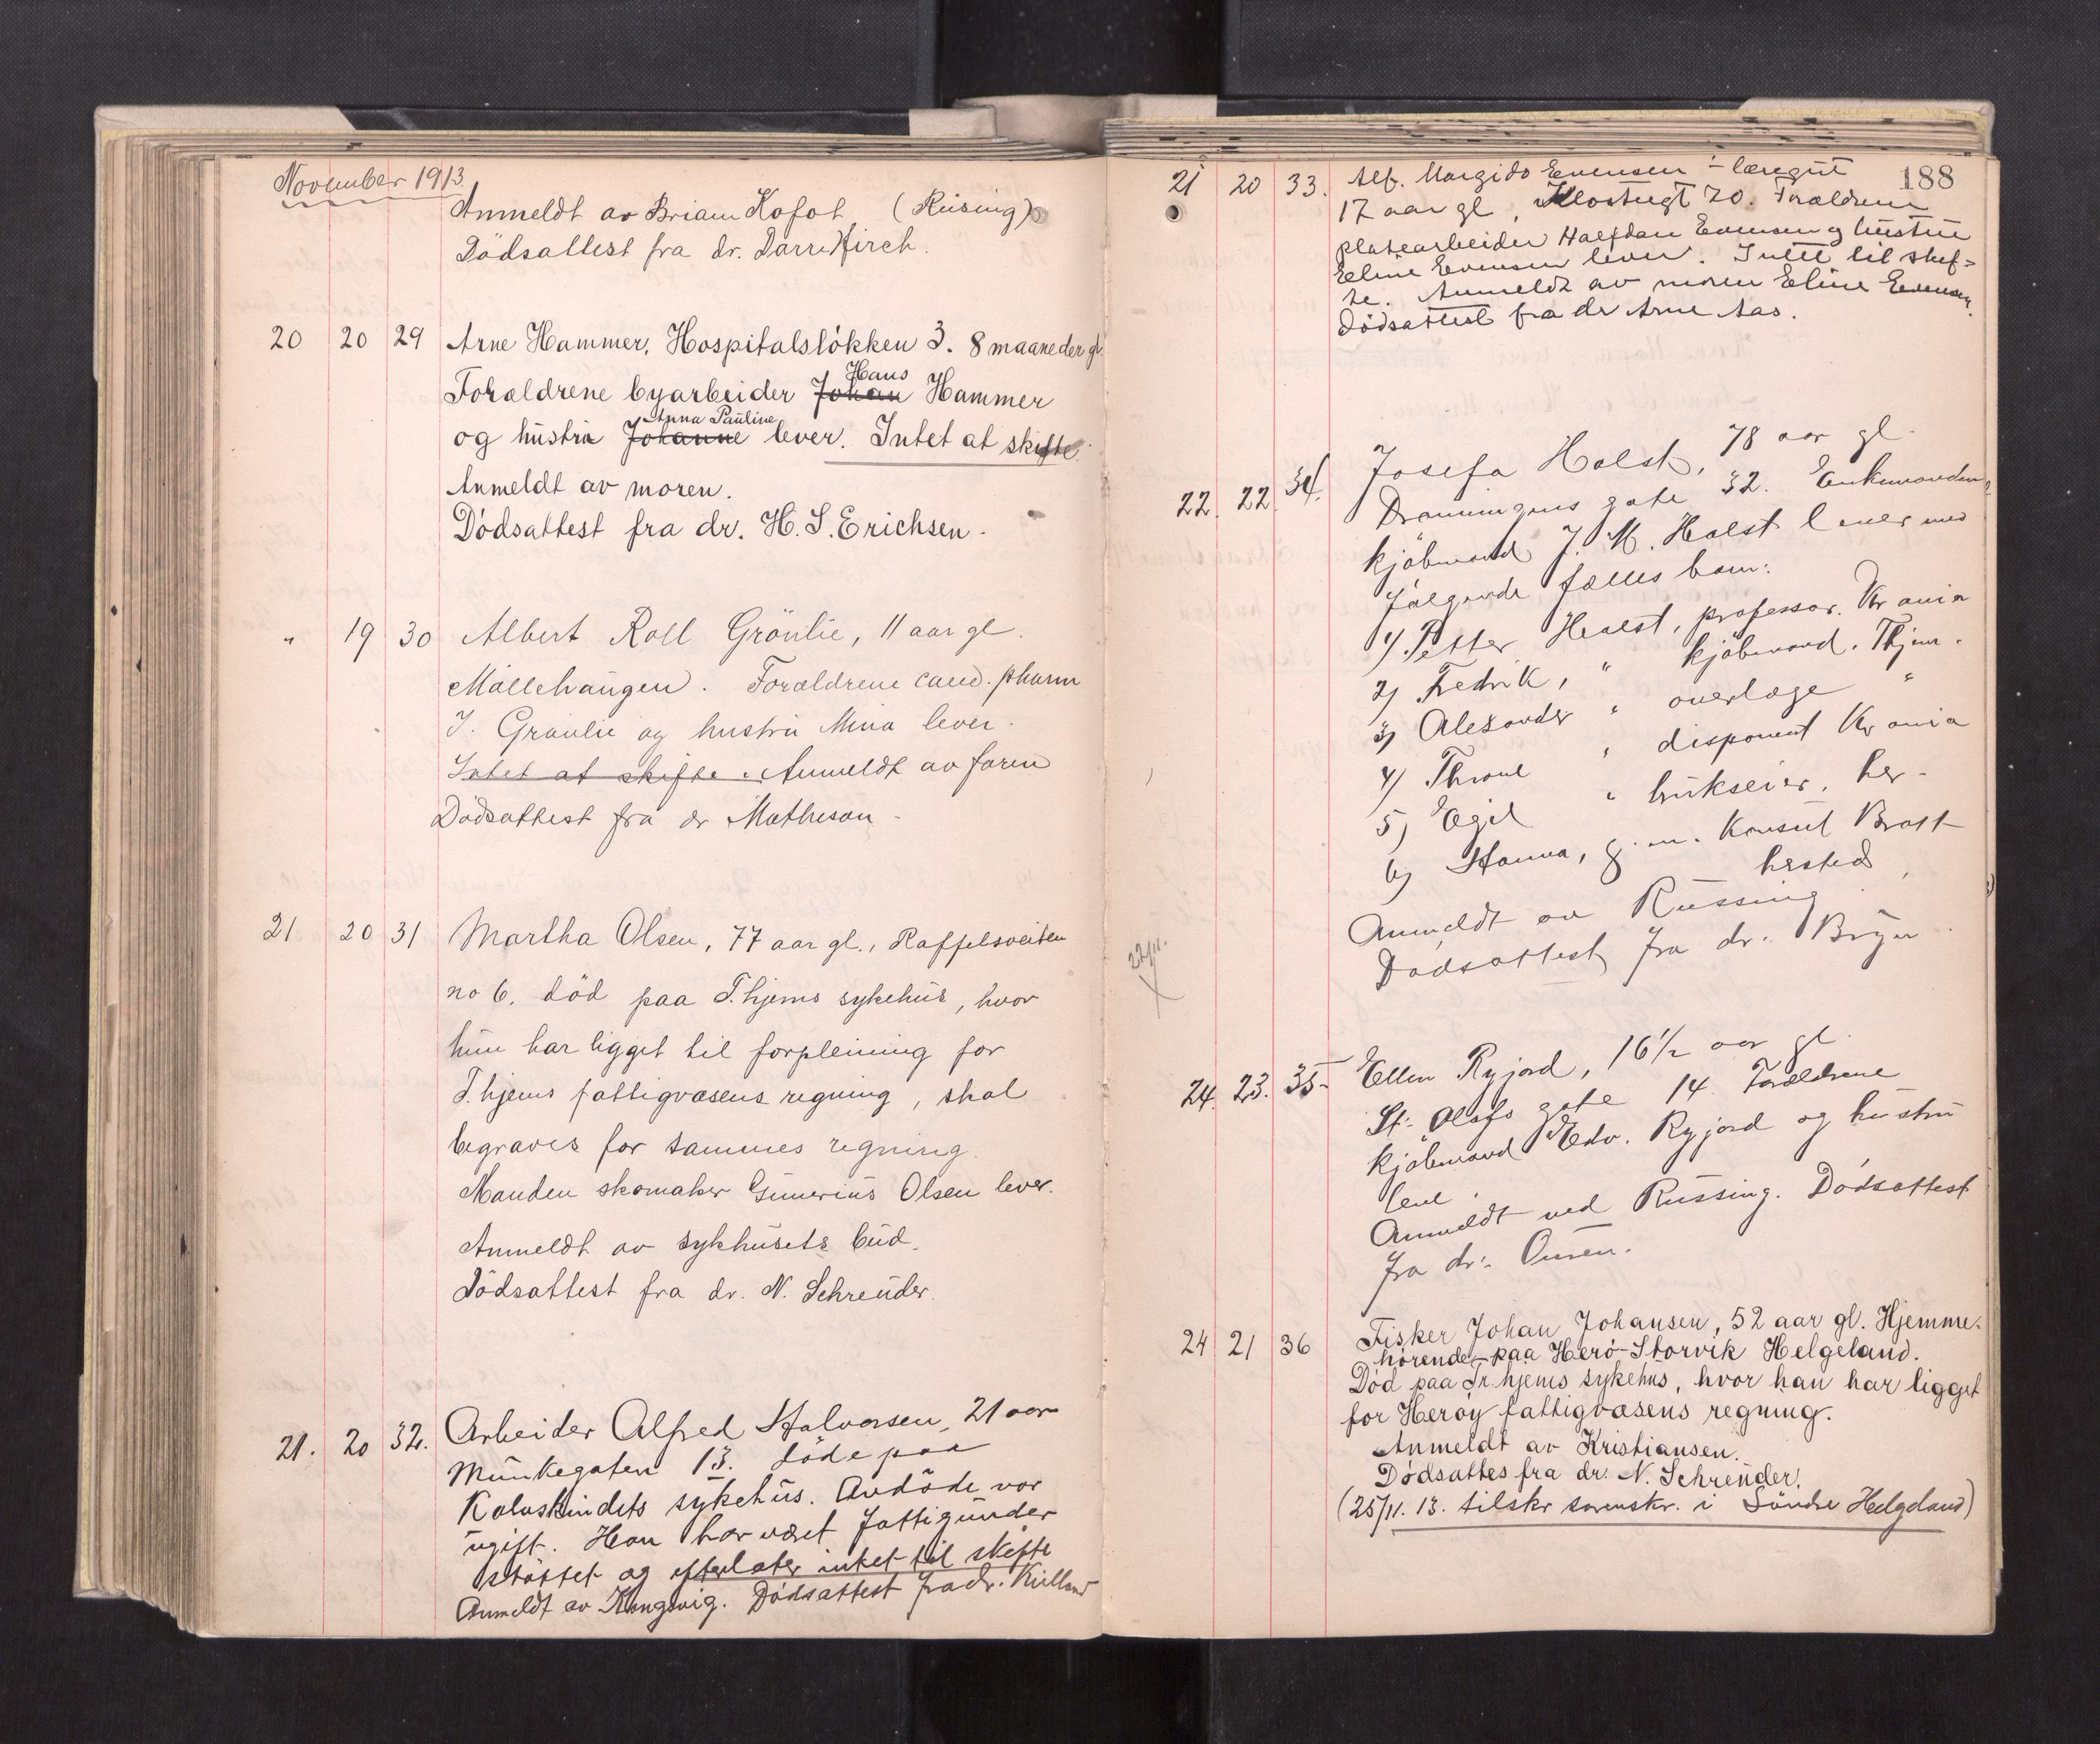 November 1913.
Anmeldt av Briam Kofot (Rising)
Dödsattest fra dr. Darre Hirch.
20 20 29 Arne Hammer, Hospitalsløkken 3. 8 maaneder gl.
Hans
Forældrene byarbeider Johan Hammer
Anna Pauline
og hustru Johanne lever. Intet at skifte.
Anmeldt av moren.
Dödsattest fra dr. H. S. Erichsen.
" 19 30 Albert Roll Grönlie, 11 aar gl.
Möllehaugen. Forældrene cand. pharm
J. Grönlie og hustru Mina lever.
Intet at skifte. Anmeldt av faren
Dödsattest fra dr Matheson
21 20 31 Martha Olsen, 77 aar gl., Raffelsveiten
no 6. död paa T.hjems sykehus, hvor
hun har ligget til forpleining for
T.hjems fattigvæsens regning, skal
begraves for sammes regning.
Manden skomaker Gunerius Olsen lever.
Anmeldt av sykhusets bud.
Dödsattest fra dr. N. Schreuder.
21. 20 32. Arbeider Alfred Halvorsen, 21 aar
Munkegaten 13. döde paa
Kalvskindets sykehus. Avdöde var
ugift. Han har været fattigunder
støttet og efterlater intet til skifte
Anmeldt av Kongsvig. Dödsattest fra dr. Killand
188
21 20 33. Alf. Margido Evensen - læregut
17 aar gl, Klostergt 20. Forældrene
platearbeider Halfdan Evensen og hustru
Eline Evensen lever. Intet til skif=
te. Anmeldt av moren Eline Evensen.
Dödsattest fra dr Arne Aas.
22. 22 34. Josefa Holst, 78 aar gl.
Dronningens gate 32. Enkemanden,
kjöbmand J. M. Holst lever med
følgende fælles barn:
1) Petter Holst, professor. Kr ania
2) Fredrik, " kjöbmand. Thjem.
3) Alexander " overlæge "
4) Throne " disponent Kr ania
5) Egil " brukseier, her-
6) Hanna, g. m. Konsul Bratt
hersteds
Anmeldt av Russing
Dødsattest fra dr. Bryn.
22/11.
24. 23. 35- Ellen Ryjord, 16 1/2 aar gl
St. Olafs gate 14. Forældrene
kjöbmand Edv. Ryjord og hustru
leve.
Anmeldt ved Russing. Dödsattest
fra dr.
24 21 36 Fisker Johan Johansen, 52 aar gl. Hjemme-
hørende paa Herö-Storvik Helgeland.
Död paa Tr.hjems sykehus, hvor han har ligget
for Herøy fattigvæsens regning.
Anmeldt av Kristiansen.
Dødsattes fra dr. N. Schreuder.
(25/11. 13. tilskr sorenskr. i Söndre Helgeland)